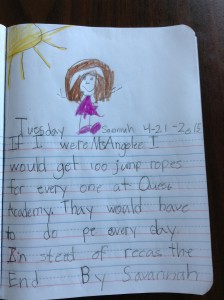 Tuesday Savannah 4-21-2015
If I were Ms Angelee I
would get 100 jump ropes
for every one at Queen
Academy. Thay would have
to do pe every day
In steed of recas the
End By Savannah